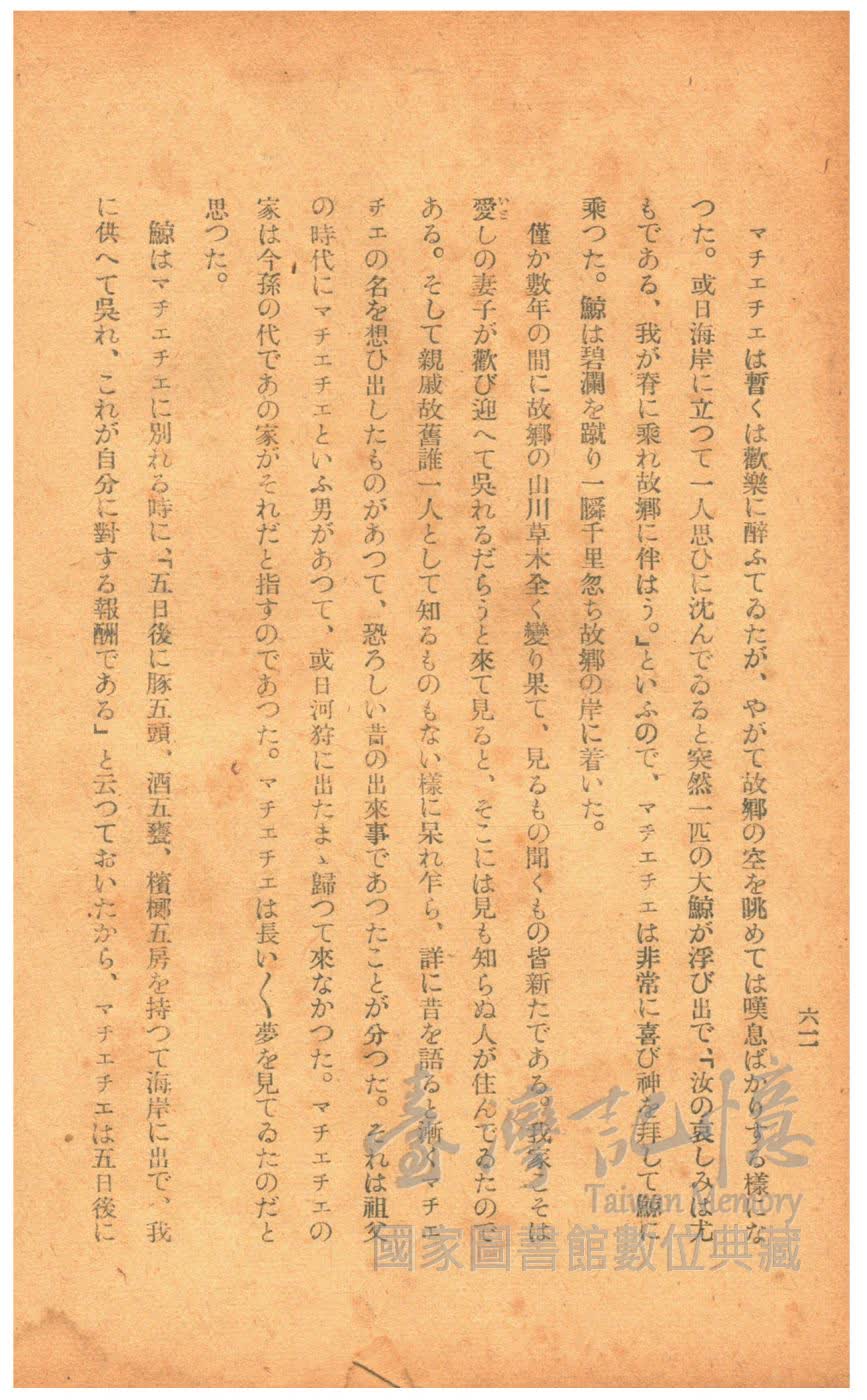 六二
マチエチエは暫くは歡樂に醉ふてゐたが、やがて故鄕の空を眺めては嘆息ばかりする樣にな
つた。或日海岸に立つて一人思ひに沈んでゐると突然一匹の大鯨が浮び出で、「汝の哀しみは尤
もである、我が脊に乘れ故鄕に伴はう。」といふので、マチエチエは非常に喜び神を拜して鯨に
乘つた。鯨は碧瀾を蹴り一瞬千里忽ち故鄕の岸に着いた。
僅か數年の間に故鄕の山川草木全く變り果て、見るもの聞くもの皆新たである。我家こそは
愛いとしの妻子が歡び迎へて吳れるだらうと來て見ると、そこには見も知らぬ人が住んでゐたので
ある。そして親戚故舊誰一人として知るものもない樣に呆れ乍ら、詳に昔を語ると漸くマチエ
チエの名を想ひ出したものがあつて、恐ろしい昔の出來事であつたことが分つた。それは祖父
の時代にマチエチエといふ男があつて、或日河狩に出たまゝ歸つて來なかつた。マチエチエの
家は今孫の代であの家がそれだと指すのであつた。マチエチエは長い〱夢を見てゐたのだと
思つた。
鯨はマチエチエに別れる時に、「五日後に豚五頭、酒五甕、檳榔五房を持つて海岸に出で、我
に供へて吳れ、これが自分に對する報酬である」と云つておいたから、マチエチエは五日後に
臺灣記憶
Taiwan Memory
國家圖書館數位典藏